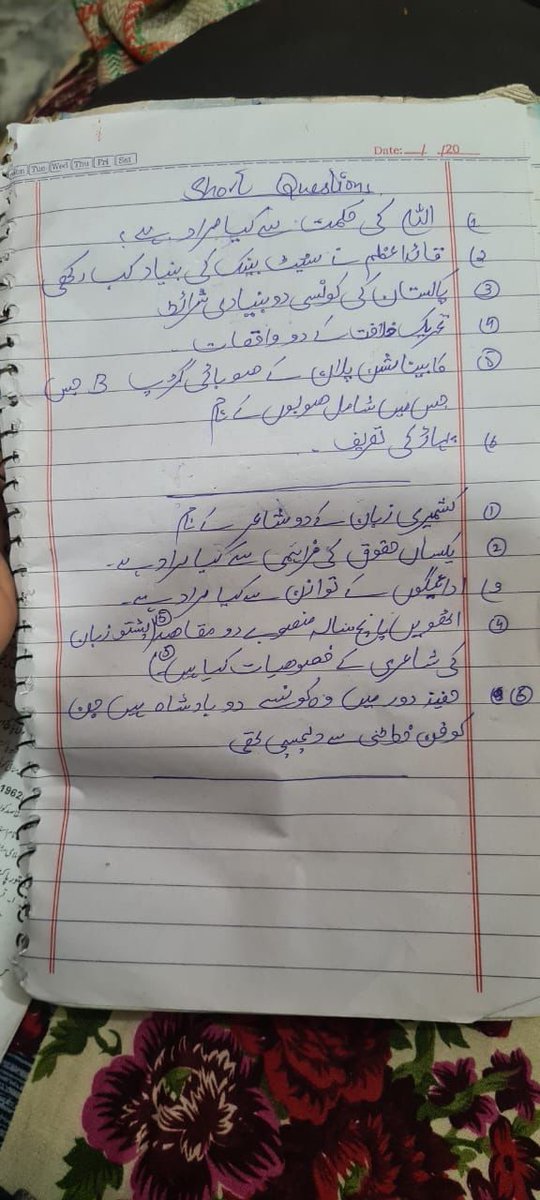 Mon Tue Wed Thu Fri Sat
Date: / /20
Short Questions
1) اللہ کی حکمت سے کیا مراد ہے؟
2) قائداعظم نے سٹیٹ بینک کی بنیاد کب رکھی
3 پاکستان کی کونسی دو بنیادی شرائط
4) تحریک خلافت کے دو واقعات
5 کابینا مشن پلان کے صوبائی گروپ B جس
جس میں شامل صوبوں کے نام
6) پہاڑ کی تعریف۔
1 کشمیری زبان کے دو شاعر کے نام
2 یکساں حقوق کی فراہمی سے کیا مراد ہے۔
3) ادائیگیوں کے توازن سے کیا مراد ہے۔
4 اٹھویں پانچ سالہ منصوبے دو مقاصد (5 پشتو زبان
کی شاعری کے خصوصیات کیا ہیں
6 مغلیہ دور میں وہ کونسے دو بادشاہ ہیں جن
کو فن خطاطی سے دلچسپی تھی
1962